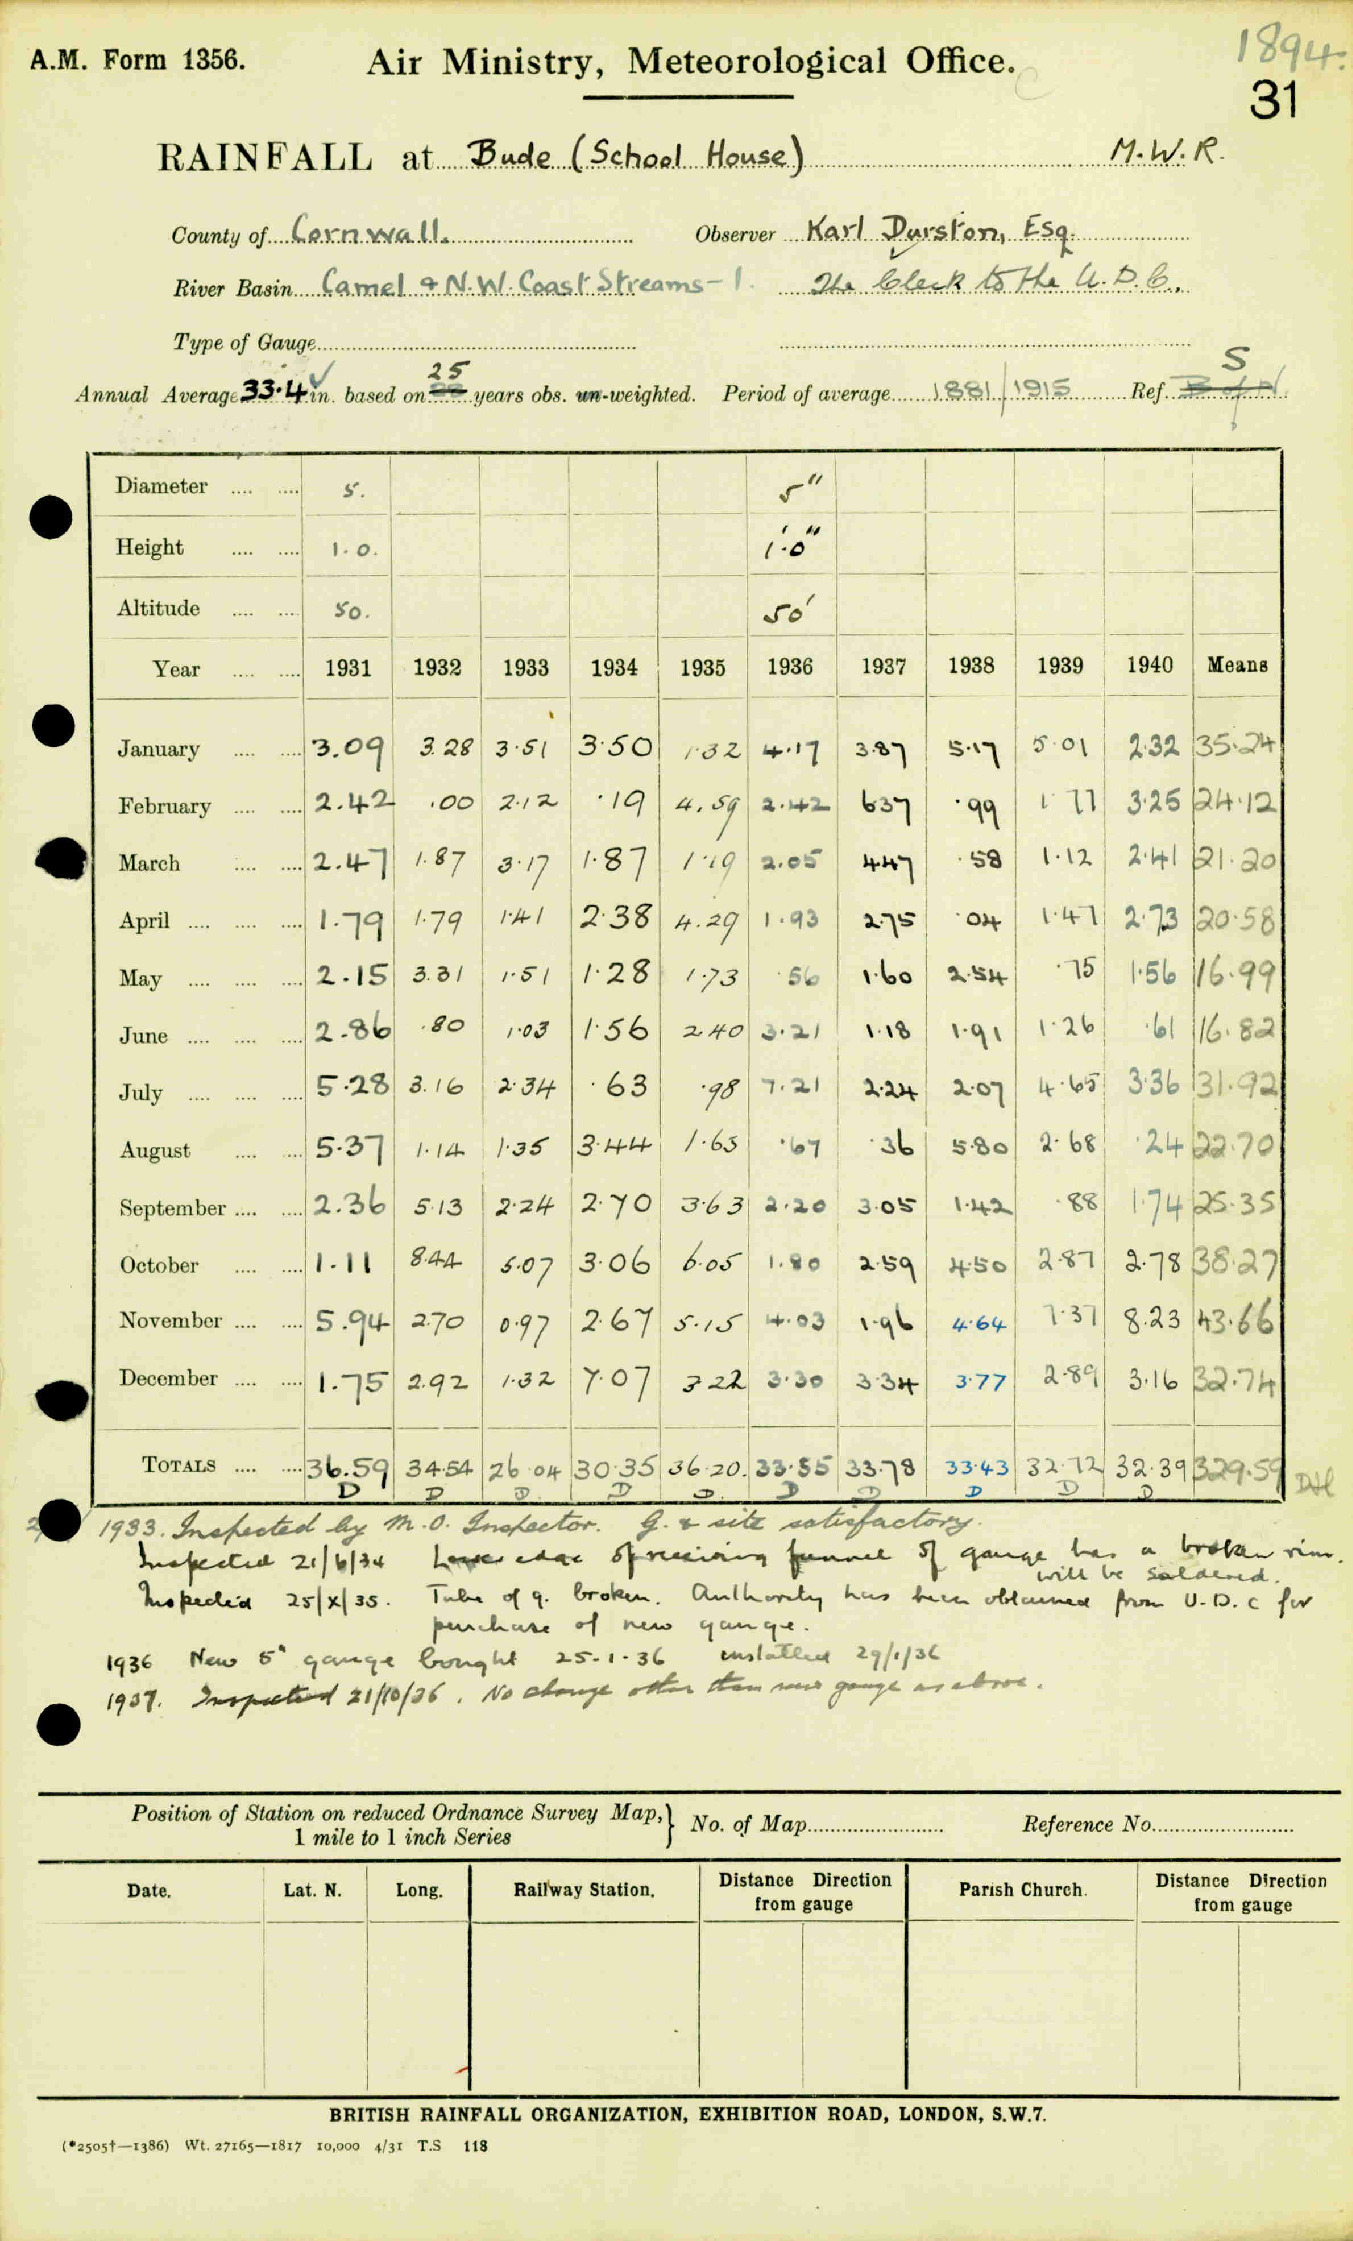 1894.
A.M. Form 1356. Air Ministry, Meteorological Office.
31
RAINFALL at Bude (School House) M.W.R.
County of Cornwall. Observer Karl Durston, Esq.
River Basin Camel & N.W. Coast Streams - 1. The Clerk to the U.D.C.
Type of Gauge
25 S
Annual Average 33.4 in. based on years obs. un-weighted. Period of average 1881/1915 Ref. B of N.
Diameter 5. 5"
Height 1.0. 1'.0"
Altitude 50. 50'
Year 1931 1932 1933 1934 1935 1936 1937 1938 1939 1940 Means
January 3.09 3.28 3.51 3.50 1.32 4.17 3.87 5.17 5.01 2.32 35.24
February 2.42 .00 2.12 .19 4.59 2.42 6.37 .99 1.77 3.25 24.12
March 2.47 1.87 3.17 1.87 1.19 2.05 4.47 .58 1.12 2.41 21.20
April 1.79 1.79 1.41 2.38 4.29 1.93 2.75 .04 1.47 2.73 20.58
May 2.15 3.31 1.51 1.28 1.73 .56 1.60 2.54 .75 1.56 16.99
June 2.86 .80 1.03 1.56 2.40 3.21 1.18 1.91 1.26 .61 16.82
July 5.28 3.16 2.34 .63 .98 7.21 2.24 2.07 4.65 3.36 31.92
August 5.37 1.14 1.35 3.44 1.65 .67 .36 5.80 2.68 .24 22.70
September 2.36 5.13 2.24 2.70 3.63 2.20 3.05 1.42 .88 1.74 25.35
October 1.11 8.44 5.07 3.06 6.05 1.80 2.59 4.50 2.87 2.78 38.27
November 5.94 2.70 0.97 2.67 5.15 4.03 1.96 4.64 7.37 8.23 43.66
December 1.75 2.92 1.32 7.07 3.22 3.30 3.34 3.77 2.89 3.16 32.74
TOTALS 36.59 34.54 26.04 30.35 36.20. 33.55 33.78 33.43 32.72 32.39 329.59
D D D D D D D D D D
1933. Inspected by M.O. Inspector. G. & site satisfactory.
Inspected 21/6/34 Lower edge of receiving funnel of gauge has a broken rim.
will be soldered.
Inspected 25/X/35. Tube of g. broken. Authority has been obtained from U.D.C for
purchase of new gauge.
1936 New 5" gauge bought 25.1.36 installed 29/1/36
1937. Inspected 21/10/36. No change other than new gauge as above.
Position of Station on reduced Ordnance Survey Map, No. of Map Reference No.
1 mile to 1 inch Series
Date. Lat. N. Long. Railway Station. Distance Direction from gauge Parish Church. Distance Direction from gauge
BRITISH RAINFALL ORGANIZATION, EXHIBITION ROAD, LONDON, S.W.7.
(*2505†—1386) Wt. 27165—1817 10,000 4/31 T.S 118